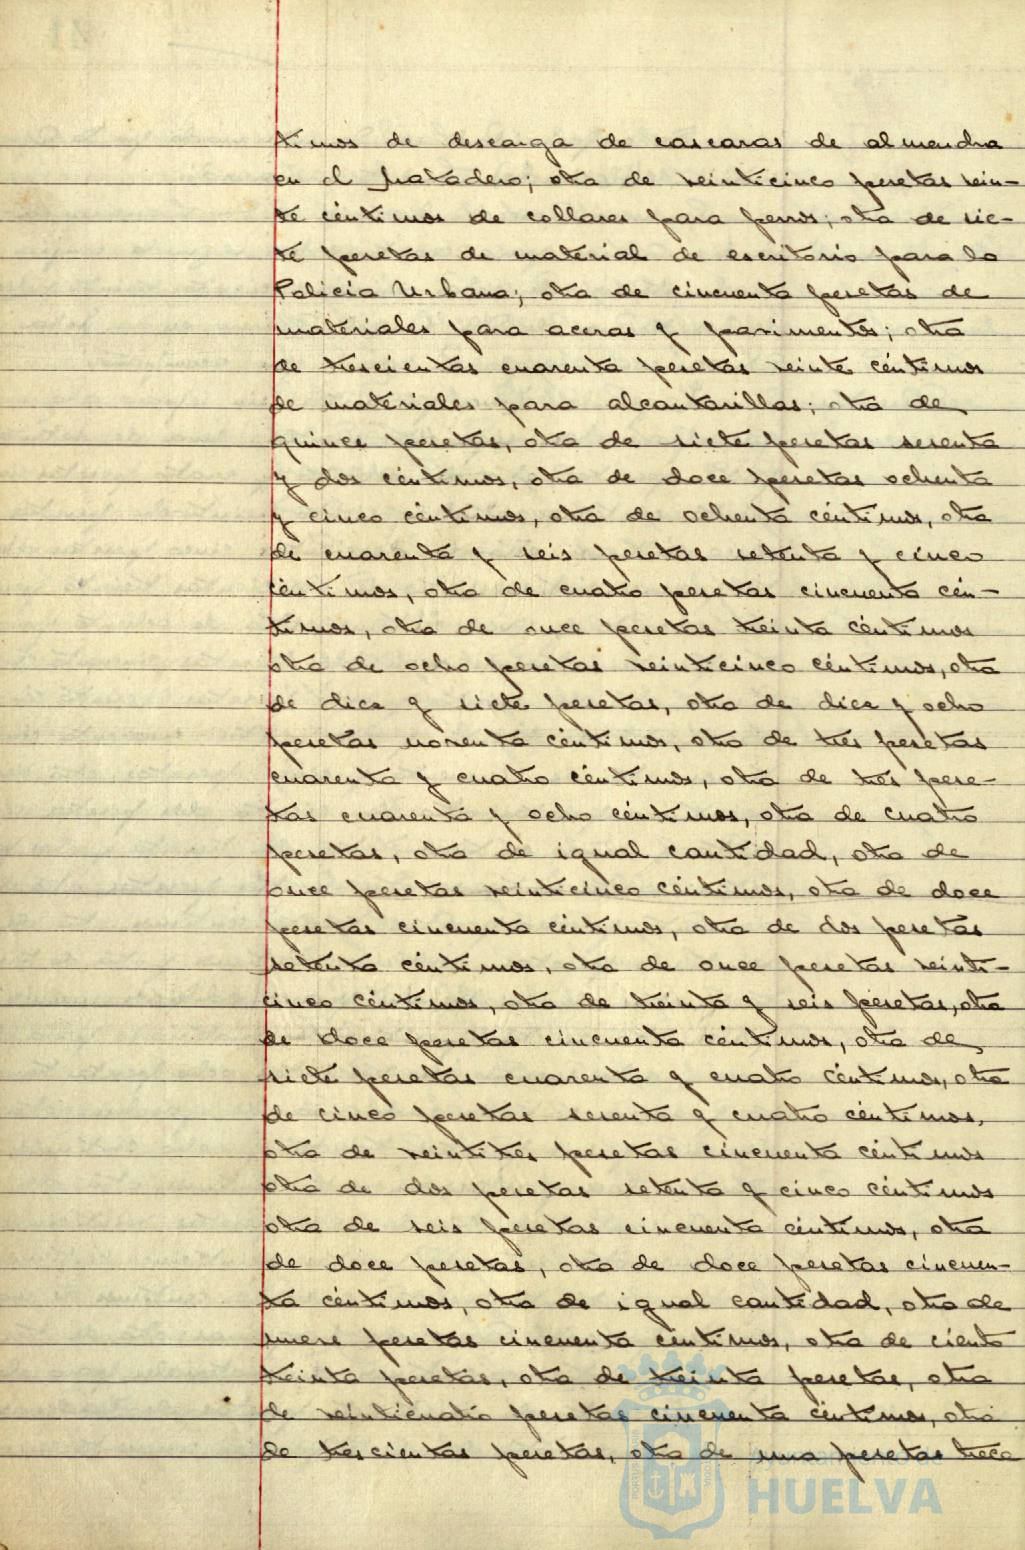 timos de descarga de cascaras de almendra
en el Matadero; otra de veinticinco pesetas vein-
te céntimos de collares para perros; otra de sie-
te pesetas de material de escritorio para la
Policía Urbana; otra de cincuenta pesetas de
materiales para aceras y pavimentos; otra
de trescientas cuarenta pesetas veinte céntimos
de materiales para alcantarillas; otra de
quince pesetas, otra de siete pesetas sesenta
y dos céntimos, otra de doce pesetas ochenta
y cinco céntimos, otra de ochenta céntimos, otra
de cuarenta y seis pesetas setenta y cinco
céntimos, otra de cuatro pesetas cincuenta cén-
timos, otra de once pesetas treinta céntimos
otra de ocho pesetas veinticinco céntimos, otra
de diez y siete pesetas, otra de diez y ocho
pesetas noventa céntimos, otra de tres pesetas
cuarenta y cuatro céntimos, otra de tres pese-
tas cuarenta y ocho céntimos, otra de cuatro
pesetas, otra de igual cantidad, otra de
once pesetas veinticinco céntimos, otra de doce
pesetas cincuenta céntimos, otra de dos pesetas
setenta céntimos, otra de once pesetas veinti-
cinco céntimos, otra de treinta y seis pesetas, otra
de doce pesetas cincuenta céntimos, otra de
siete pesetas cuarenta y cuatro céntimos, otra
de cinco pesetas sesenta y cuatro céntimos,
otra de veintitres pesetas cincuenta céntimos
otra de dos pesetas setenta y cinco céntimos
otra de seis pesetas cincuenta céntimos, otra
de doce pesetas, otra de doce pesetas cincuen-
ta céntimos, otra de igual cantidad, otra de
nueve pesetas cincuenta céntimos, otra de ciento
treinta pesetas, otra de treinta pesetas, otra
de veinticuatro pesetas cincuenta céntimos, otra
de trescientas pesetas, otra de una pesetas trece
HUELVA